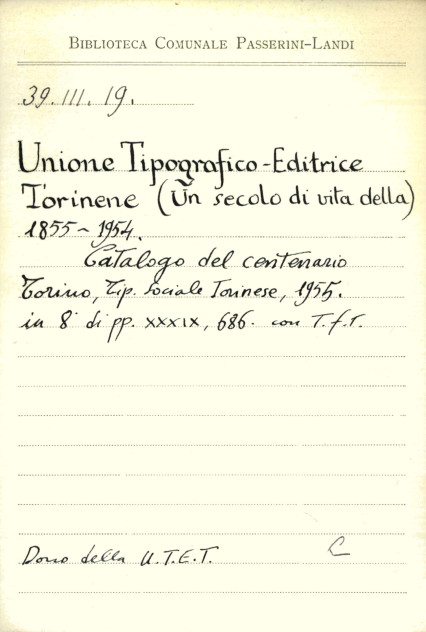 BIBLIOTECA COMUNALE PASSERINI-LANDI
39.III.19.
Unione Tipografico-Editrice
Torinene (Un secolo di vita della)
1855-1954.
Catalogo del centenario
Torino, Tip. Sociale Torinese, 1955.
in 8° di pp. XXXIX, 686. con T.f.T.
Dono della U.T.E.T. C